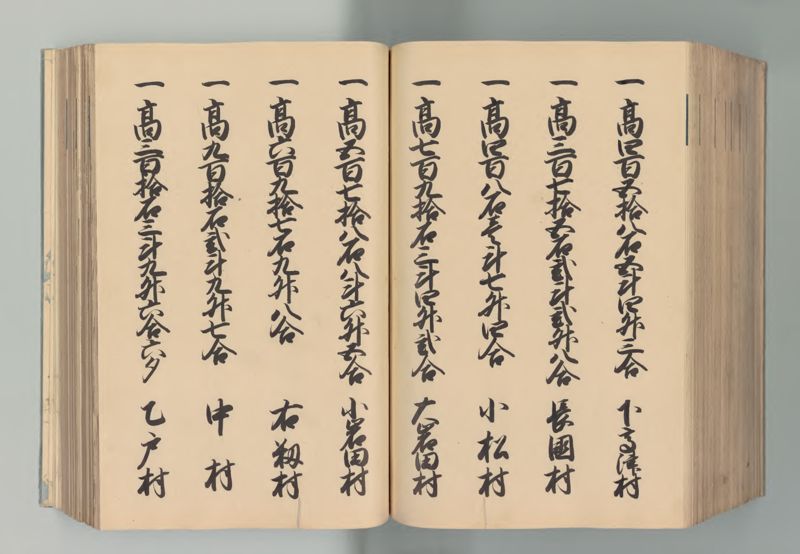 一高四百五拾八石五斗四升三合 下高津村
一高三百七拾五石弐斗弐升八合 長國村
一高四百八石壱斗七升四合 小松村
一高七百九拾石三斗四升弐合 大岩田村
一高五百七拾八石八斗六升五合 小岩田村
一高六百九拾七石九升八合 右籾村
一高九百拾石弐斗九升七合 中村
一高三百拾石三斗九升六合六夕 乙戸村